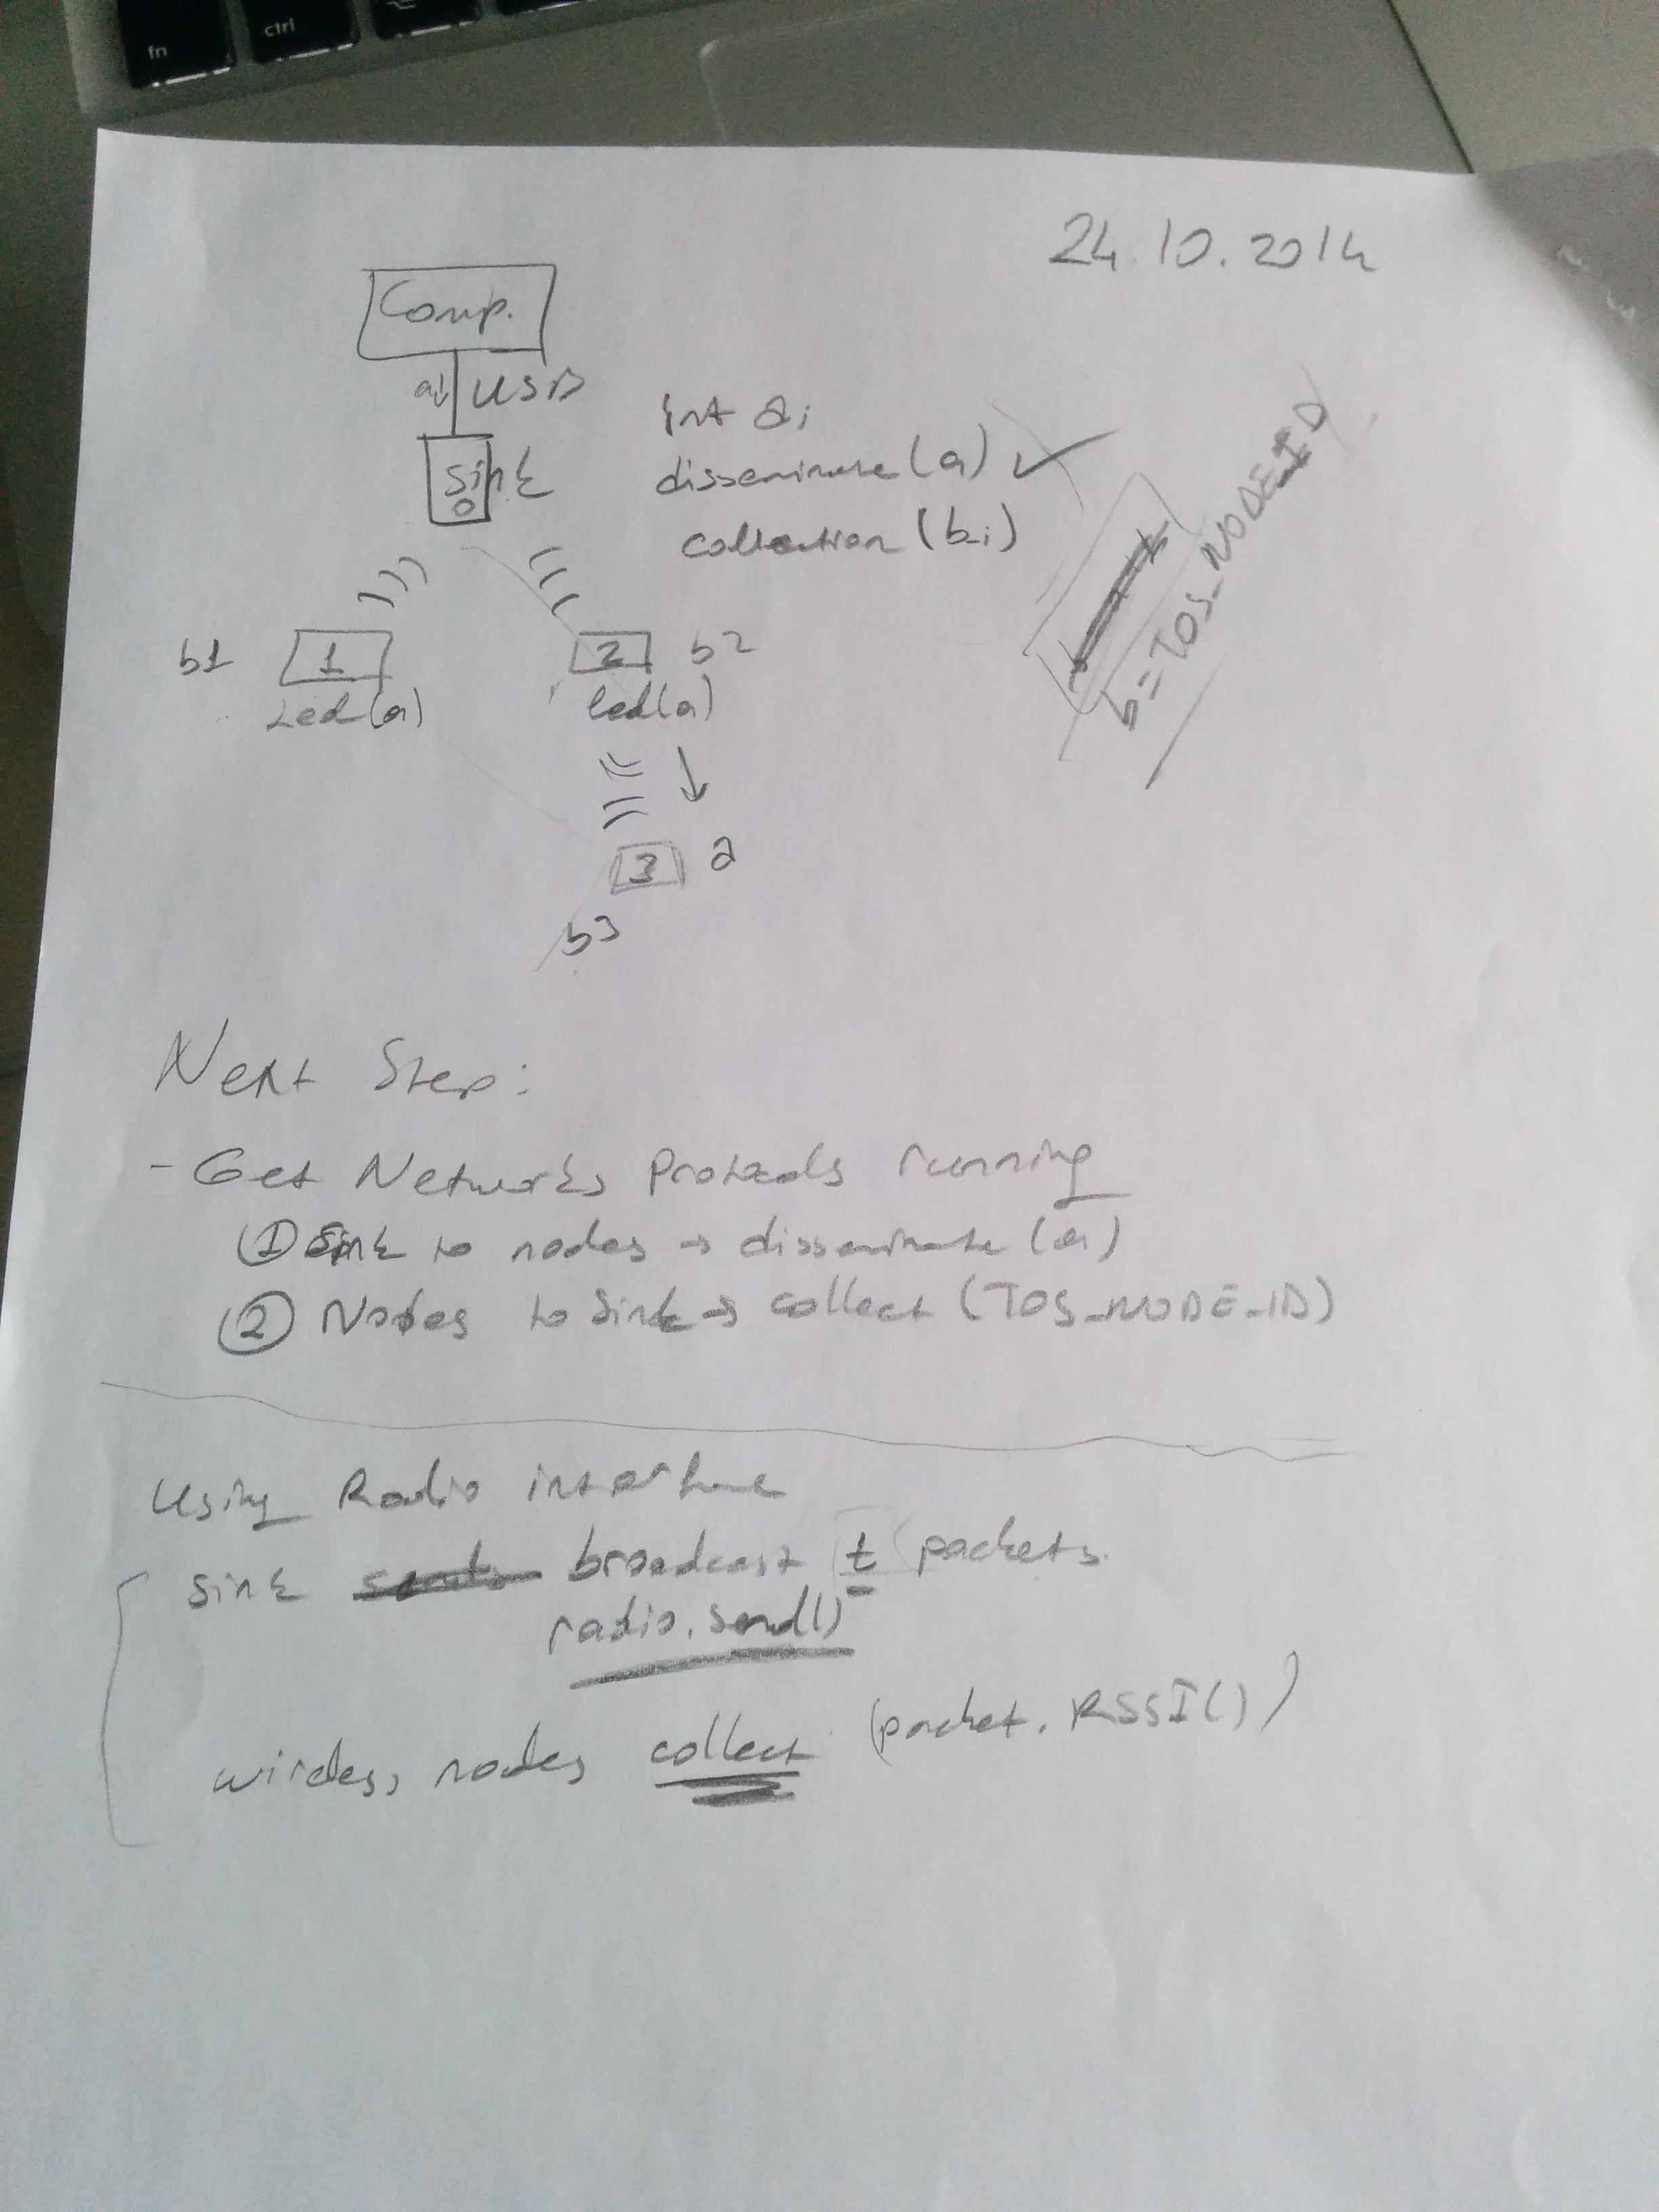 fn
ctrl
24.10.2014
Comp.
a↓ USB
Sink
0
int a;
disseminate (a) ✓
collection (b_i)
b = TOS_NODE_ID
b1 1
Led(a)
2 b2
led(a)
3 a
b3
Next Step:
- Get Networks Protocols running
① Sink to nodes → disseminate (a)
② Nodes to Sink → collect (TOS_NODE_ID)
Using Radio interface
Sink sends broadcast t packets.
radio.send()
wireless nodes collect (packet.RSSI())